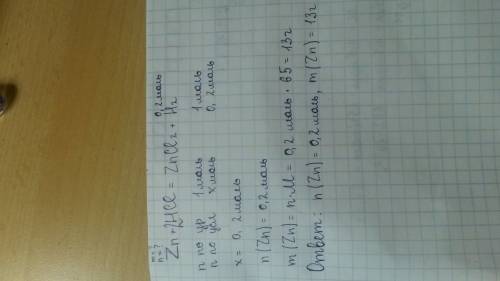 m=?
n=? 0,2моль
Zn+2HCl = ZnCl2 + H2
n по ур 1моль 1моль
n по усл xмоль 0,2моль
x = 0,2моль
n(Zn) = 0,2моль
m(Zn) = n·M = 0,2 моль · 65 = 13г
Ответ: n(Zn) = 0,2моль, m(Zn) = 13г